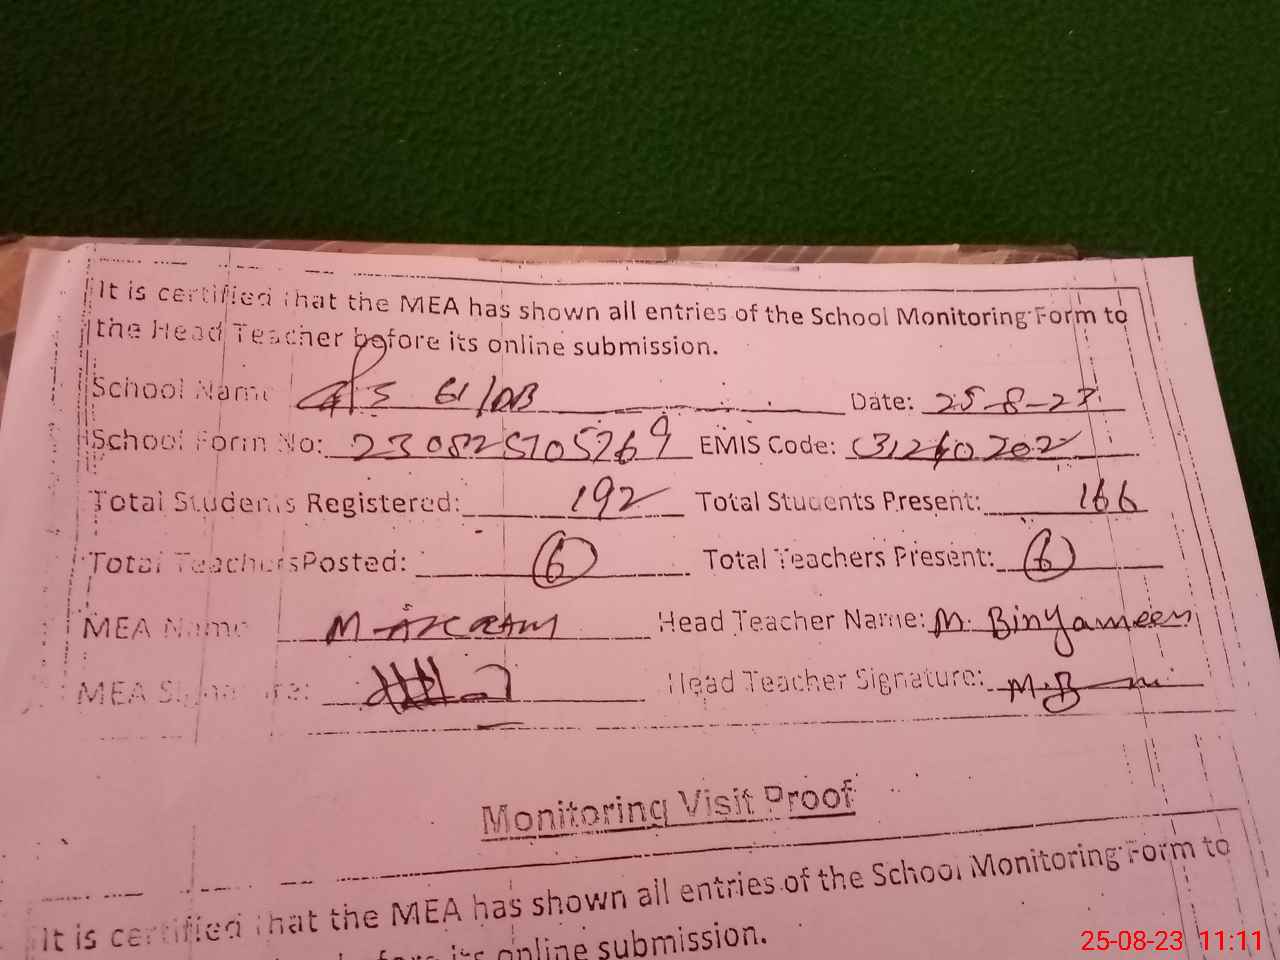 It is certified that the MEA has shown all entries of the School Monitoring Form to
the Head Teacher before its online submission.
School Name 61/DB Date: 25-8-23
School Form No: 230825105269 EMIS Code: 31260202
Total Students Registered: 192 Total Students Present: 166
Total Teachers Posted: 6 Total Teachers Present: 6
MEA Name M-AKRAM Head Teacher Name: M. Binyameen
MEA Signature: Head Teacher Signature: M.B
Monitoring Visit Proof
It is certified that the MEA has shown all entries of the School Monitoring Form to
before its online submission.
25-08-23 11:11